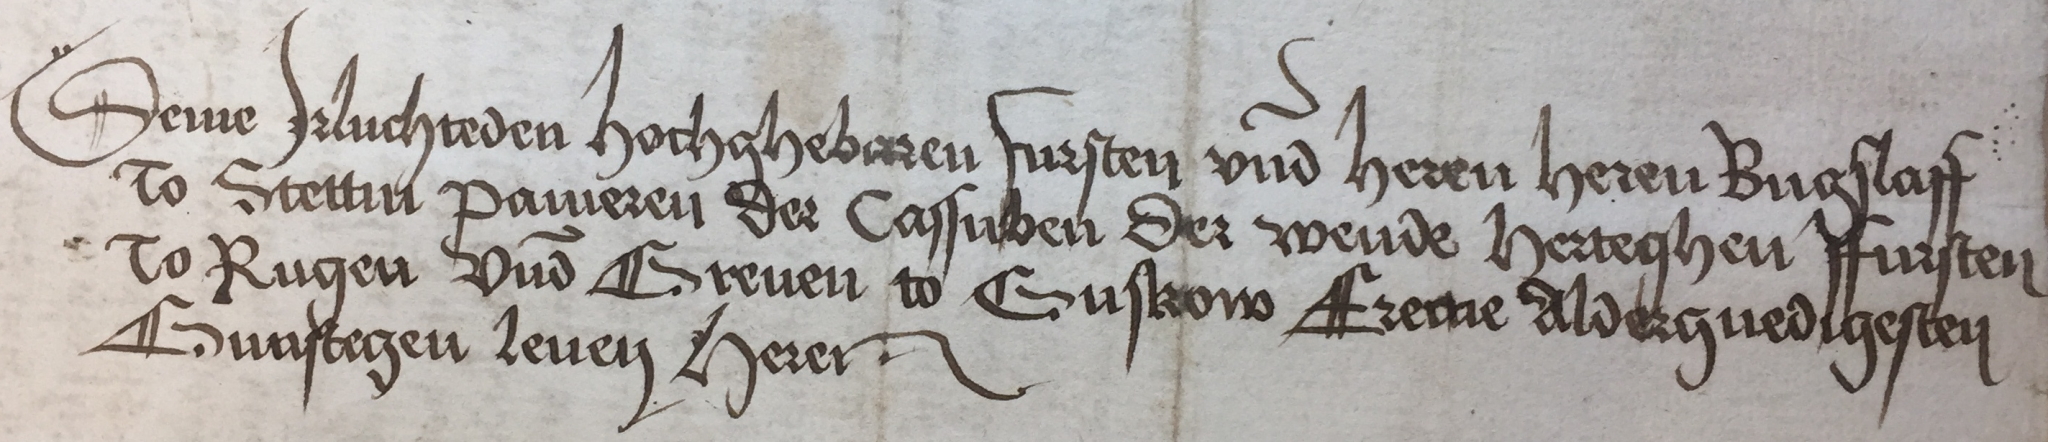 Deme Irluchteden hochghebaren fursten vnd heren heren Bugslaff
To Stettin Pameren der Cassuben der wende herteghen ffursten
To Rugen vnd Greuen to Guskow Ereme Aldergnedigesten
Gunstegen leuen Heren